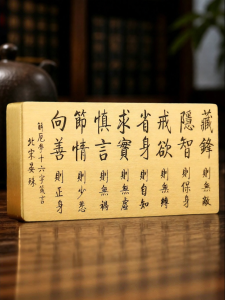 藏鋒則無敵
隱智則保身
戒欲則無
省身則自知
求實則無虛
慎言則無禍
節情則少
向善則正身
解厄學十六字箴言
北宋晏殊